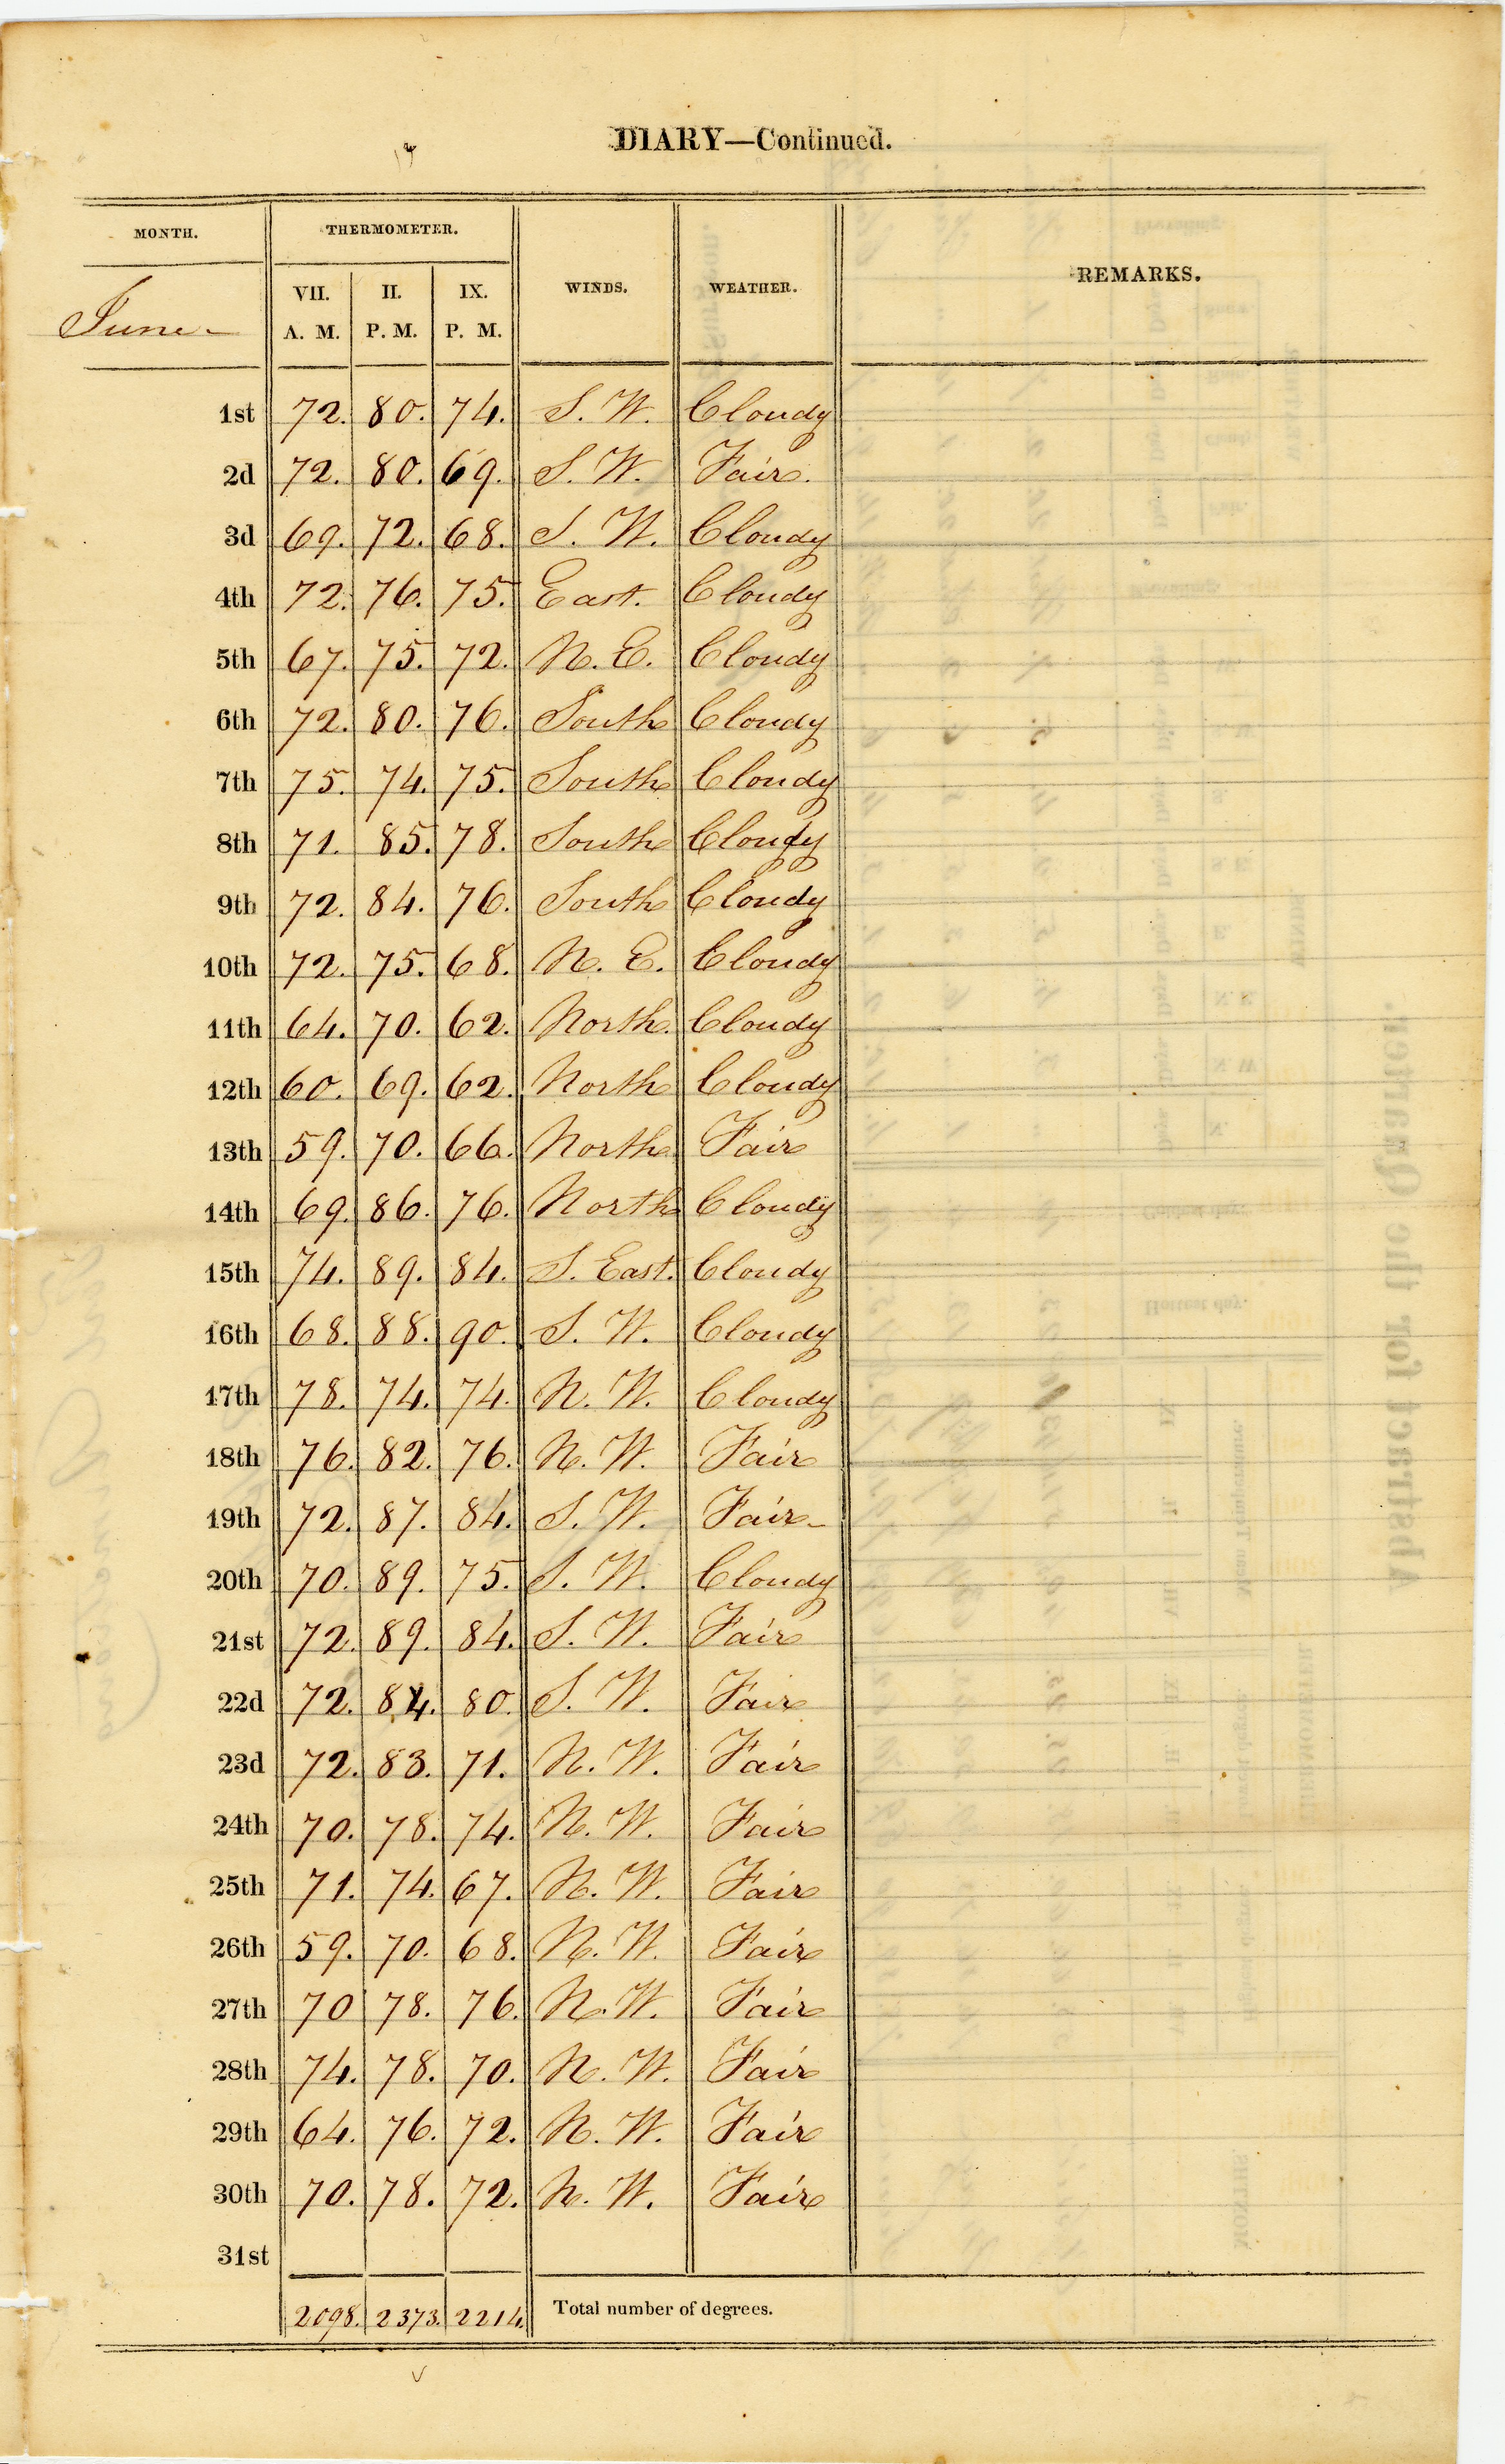 DIARY—Continued.
MONTH. THERMOMETER. WINDS. WEATHER. REMARKS.
VII. II. IX.
June A. M. P. M. P. M.
1st 72. 80. 74. S. W. Cloudy
2d 72. 80. 69. S. W. Fair.
3d 69. 72. 68. S. W. Cloudy
4th 72. 76. 75. East. Cloudy
5th 67. 75. 72. N. E. Cloudy
6th 72. 80. 76. South Cloudy
7th 75. 74. 75. South Cloudy
8th 71. 85. 78. South Cloudy
9th 72. 84. 76. South Cloudy
10th 72. 75. 68. N. E. Cloudy
11th 64. 70. 62. North. Cloudy
12th 60. 69. 62. North Cloudy
13th 59. 70. 66. North Fair
14th 69. 86. 76. North Cloudy
15th 74. 89. 84. S. East. Cloudy
16th 68. 88. 90. S. W. Cloudy
17th 78. 74. 74. N. W. Cloudy
18th 76. 82. 76. N. W. Fair
19th 72. 87. 84. S. W. Fair
20th 70. 89. 75. S. W. Cloudy
21st 72. 89. 84. S. W. Fair
22d 72. 84. 80. S. W. Fair
23d 72. 83. 71. N. W. Fair
24th 70. 78. 74. N. W. Fair
25th 71. 74. 67. N. W. Fair
26th 59. 70. 68. N. W. Fair
27th 70 78. 76. N. W. Fair
28th 74. 78. 70. N. W. Fair
29th 64. 76. 72. N. W. Fair
30th 70. 78. 72. N. W. Fair
31st
2098. 2373. 2214. Total number of degrees.